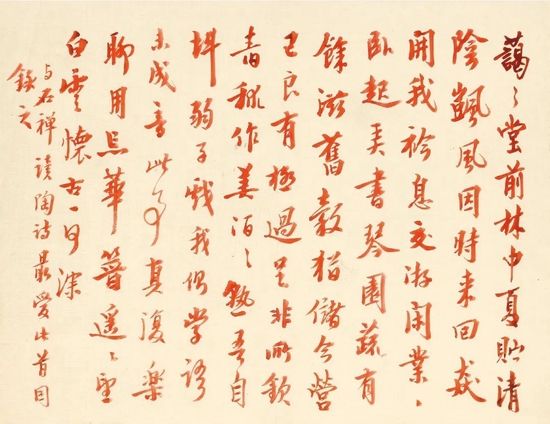 藹〻堂前林中夏貯清
陰颽風因時来回飈
開我衿息交游閑業〻
臥起弄書琴園蔬有
餘滋舊穀猶儲今營
己良有極過足非所欽
舂秫作美酒〻熟吾自
斟弱子戲我側學語
未成音此事真復樂
聊用忘華簪遥〻望
白雲懷古一何深
与石禪讀陶詩最愛此首因
錄之